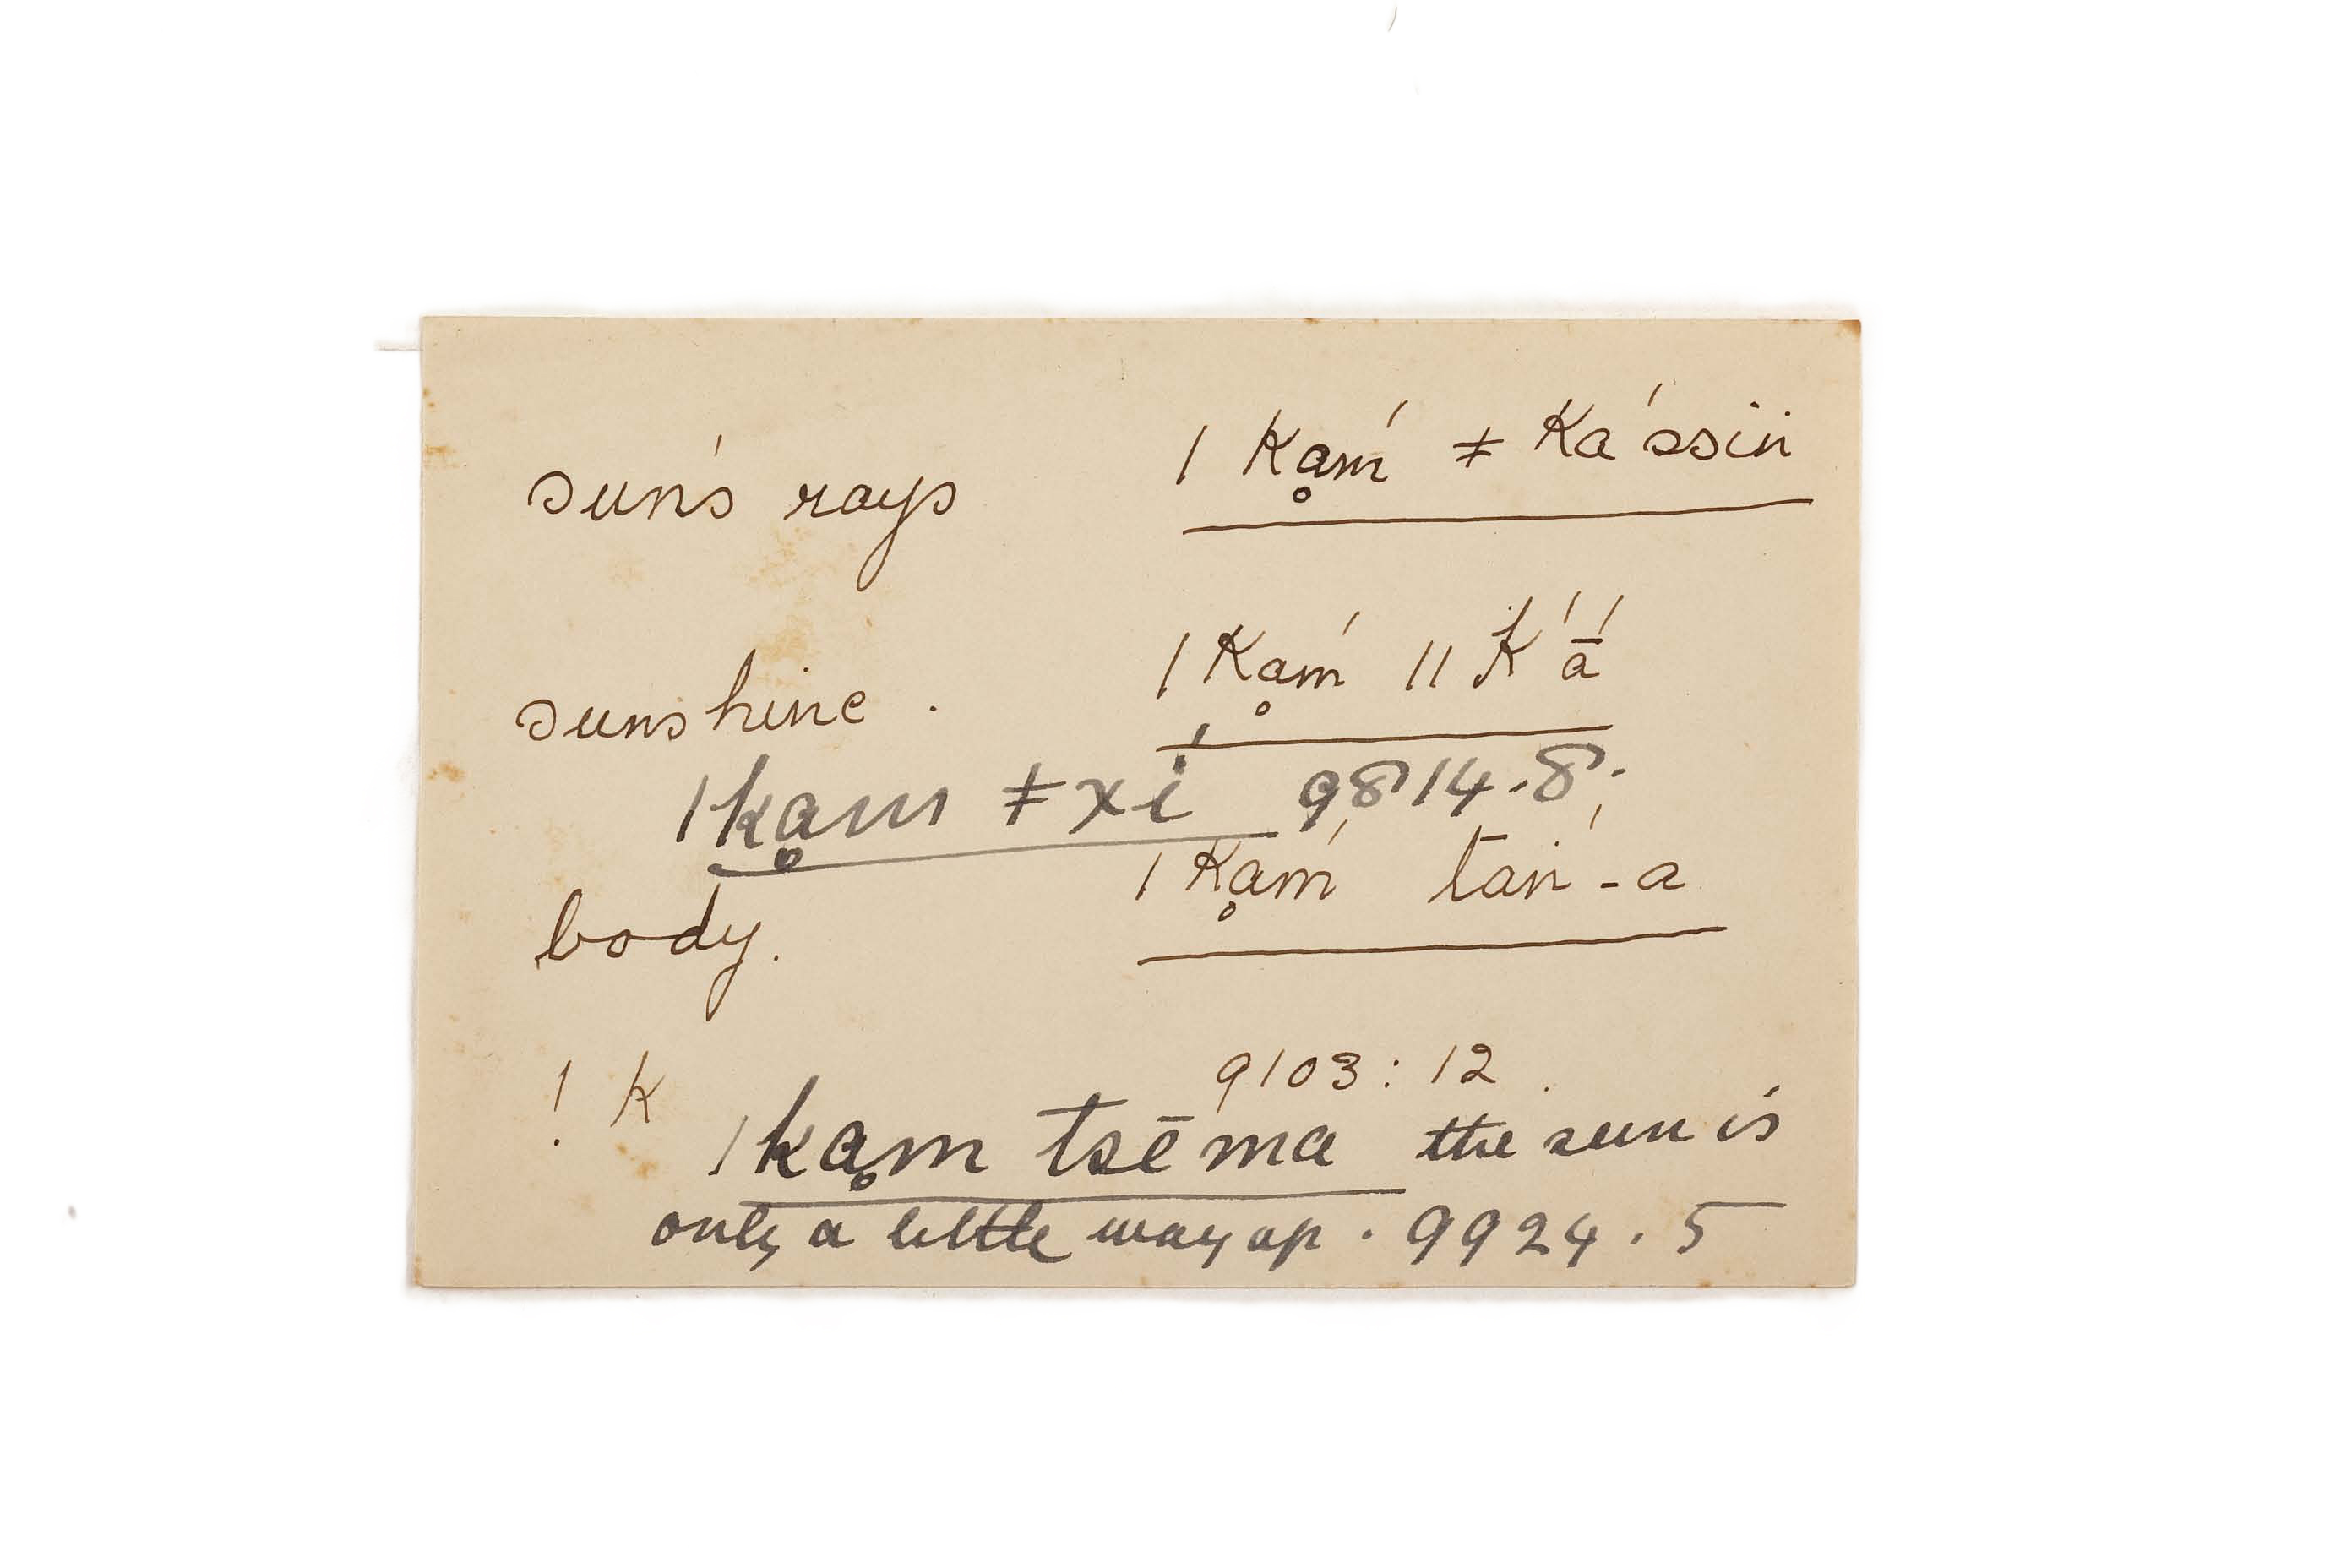 sun's rays ǀKḁḿ ǂKá̄ssiń
sunshine. ǀKḁḿ ǁK'ā́
ǀkḁm ǂxí 9814.8.
body. ǀKḁḿ tań-a
9103:12.
! K
ǀkḁm tsēma the sun is
only a little way up. 9924.5